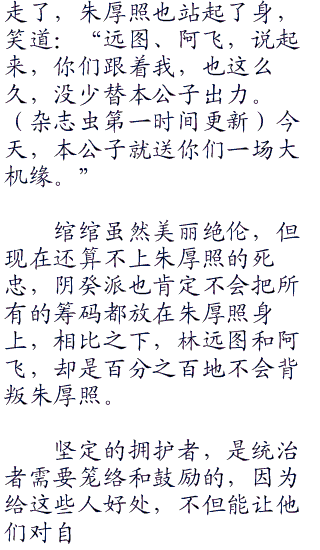 走了，朱厚照也站起了身，
笑道：“远图、阿飞，说起
来，你们跟着我，也这么
久，没少替本公子出力。
（杂志虫第一时间更新）今
天，本公子就送你们一场大
机缘。”
绾绾虽然美丽绝伦，但
现在还算不上朱厚照的死
忠，阴癸派也肯定不会把所
有的筹码都放在朱厚照身
上，相比之下，林远图和阿
飞，却是百分之百地不会背
叛朱厚照。
坚定的拥护者，是统治
者需要笼络和鼓励的，因为
给这些人好处，不但能让他
们对自